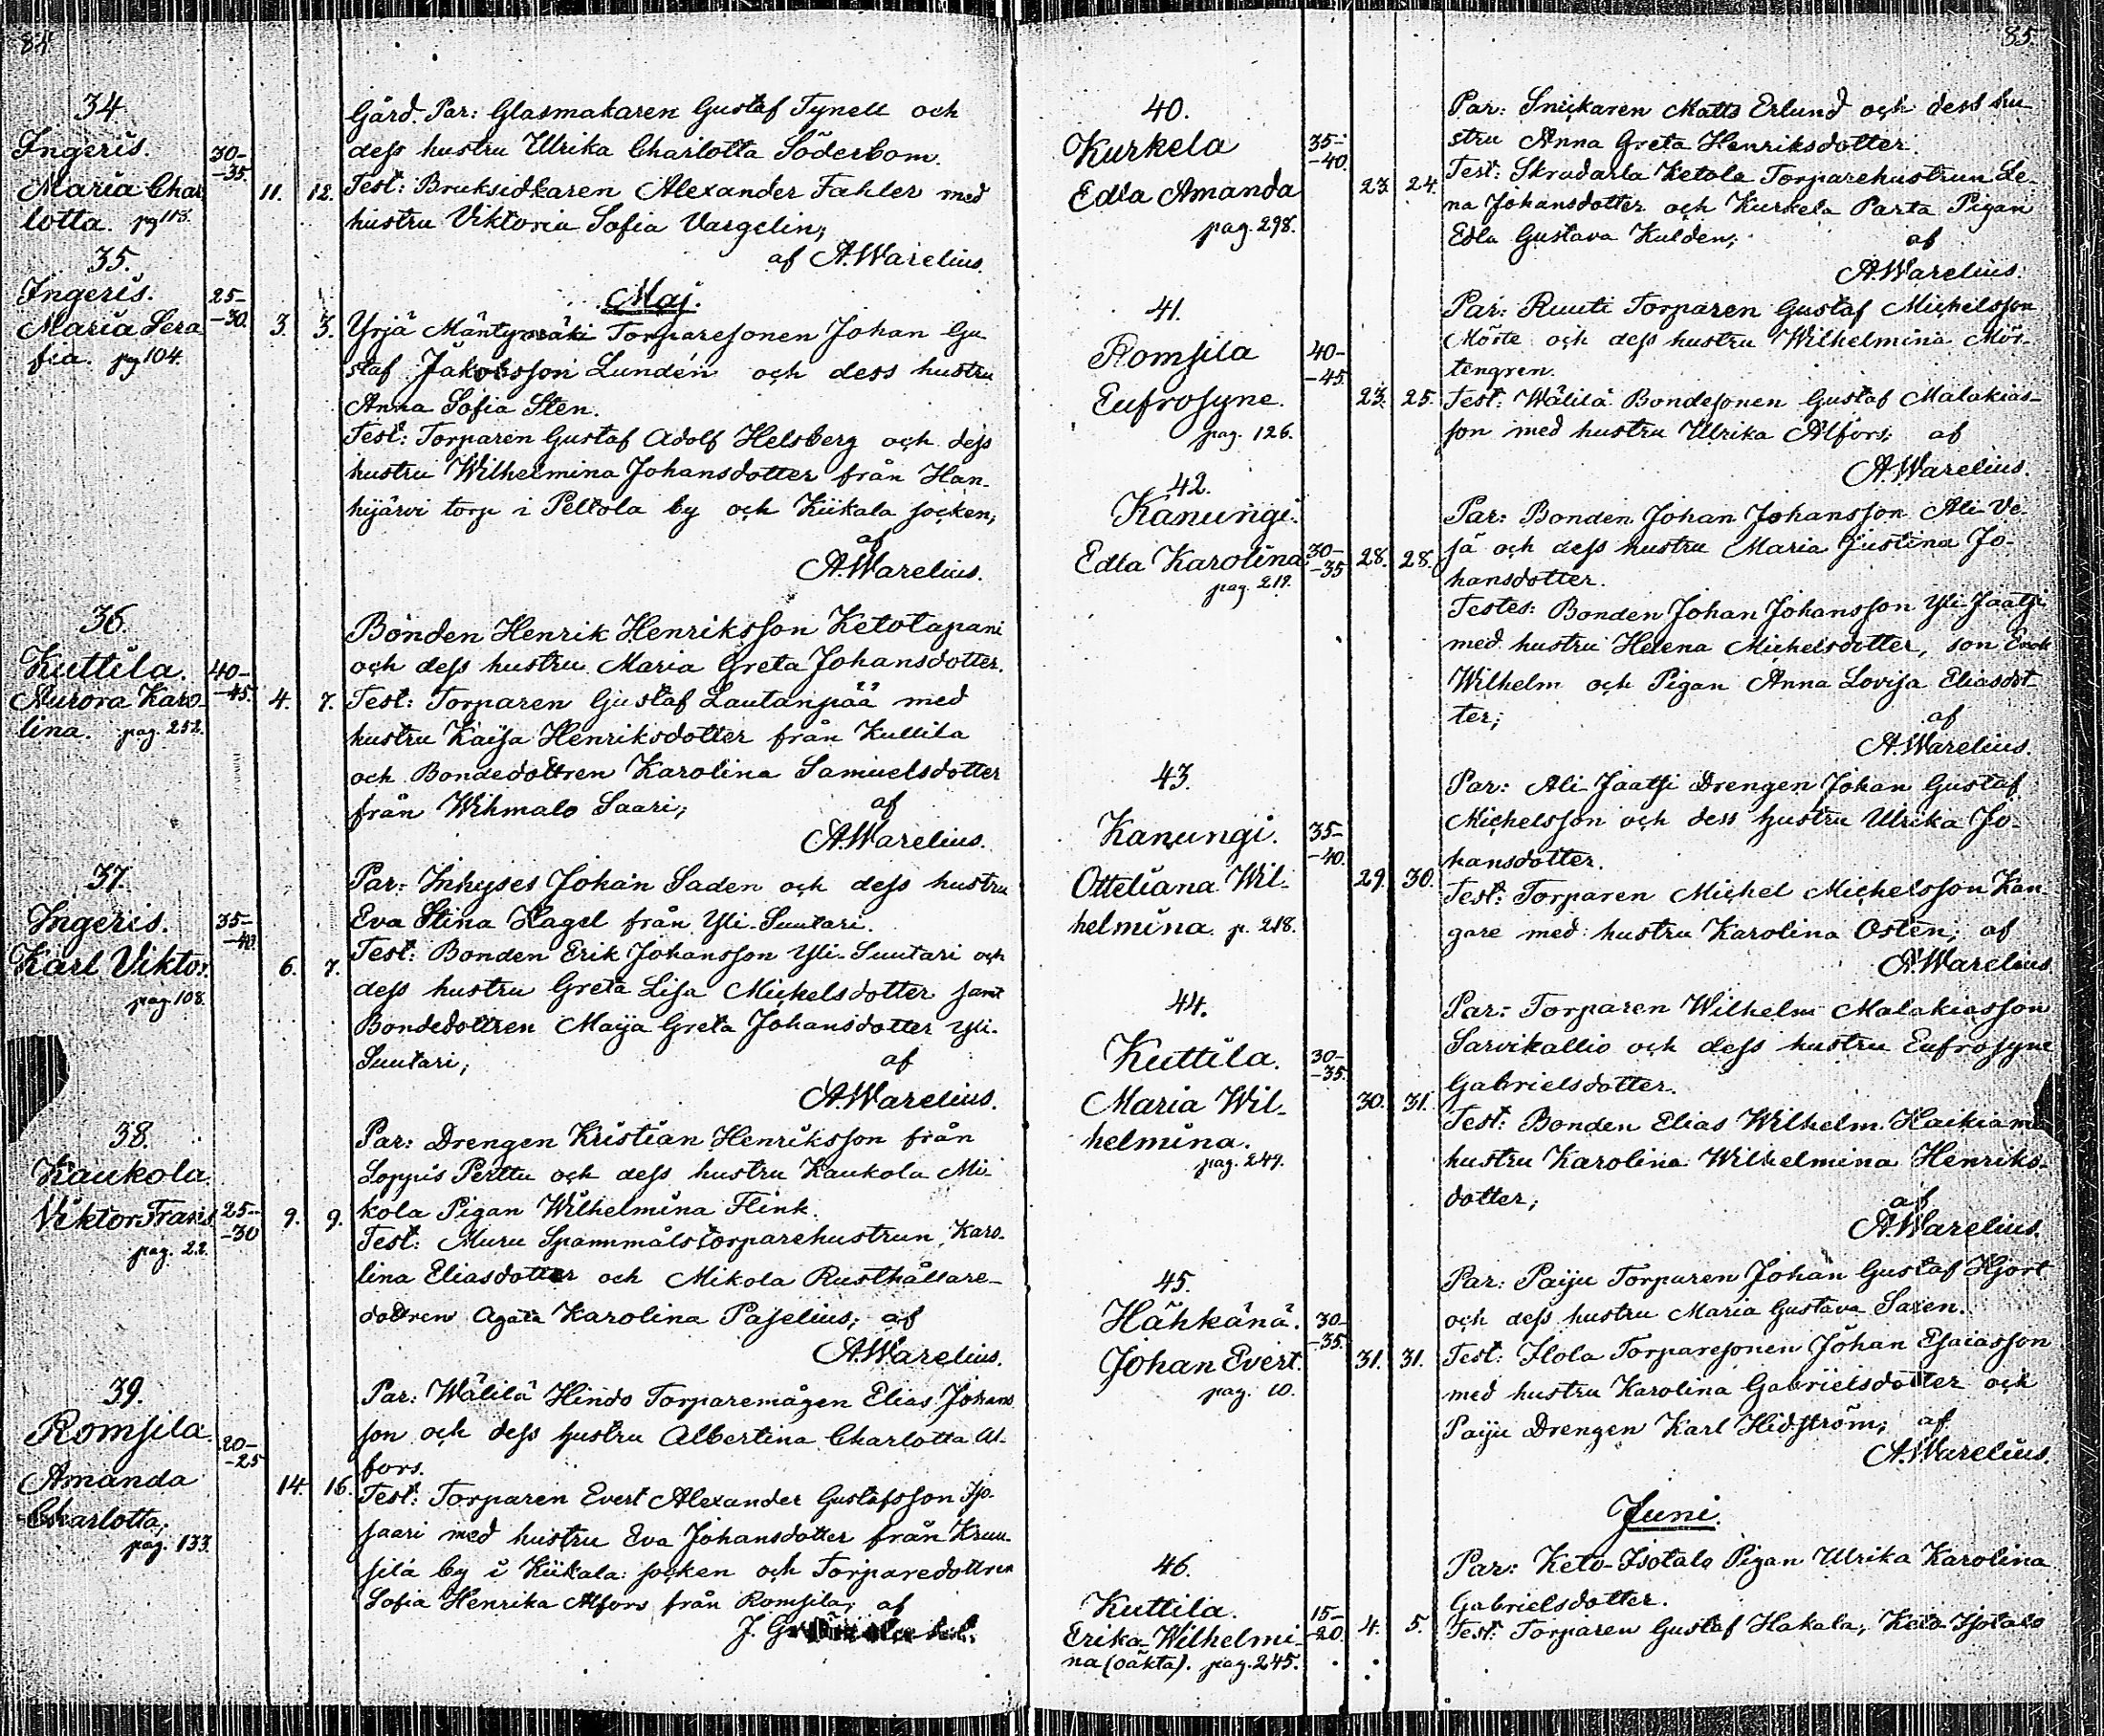 84.
34.
Ingeris.
Maria Char
lotta. pg 113.
30-
-35.
11. 12.
Gård. Par: Glasmakaren Gustaf Tynell och
dess hustru Ulrika Charlotta Söderbom.
Test: Bruksidkaren Alexander Fahler med
hustru Viktoria Sofia Vargelin;
af A. Warelius.
Maj.
35.
Ingeris.
Maria Sera
fia. pg 104.
25-
-30.
3. 3.
Yrjä Mäntymäki Torparesonen Johan Gu
staf Jakobsson Lundén och dess hustru
Anna Sofia Sten.
Test: Torparen Gustaf Adolf Helsberg och dess
hustru Wilhelmina Johansdotter från Han-
hijärvi torp i Peltola by och Kiikala socken;
af
A. Warelius.
36.
Kuttila.
Aurora Karo-
lina. pag. 252.
40-
-45.
4. 7.
Bonden Henrik Henriksson Ketotapani
och dess hustru Maria Greta Johansdotter.
Test: Torparen Gustaf Lautanpää med
hustru Kaisa Henriksdotter från Kuttila
och Bondedottren Karolina Samuelsdotter
från Wihmalo Saari; af
A. Warelius.
37.
Ingeris.
Karl Viktor.
pag. 108.
35-
-40.
6. 7.
Par: Inhyses Johan Saden och dess hustru
Eva Stina Hagel från Yli-Suutari.
Test: Bonden Erik Johansson Yli-Suutari och
dess hustru Greta Lisa Michelsdotter samt
Bondedottren Maija Greta Johansdotter Yli-
Suutari; af
A. Warelius.
38.
Kaukola.
Viktor Frans
pag. 22.
25-
-30
9. 9.
Par: Drengen Kristian Henriksson från
Loppis Perttu och dess hustru Kaukola Mi-
kola Pigan Wilhelmina Flink.
Test: Muru Spannmålstorparehustrun Karo-
lina Eliasdotter och Mikola Rusthållare-
dottren Agata Karolina Paselius; af
A. Warelius.
39.
Romsila.
Amanda
Charlotta;
pag. 133.
20-
-25
14. 16.
Par: Wälilä Hindo Torparemågen Elias Johans
son och dess hustru Albertina Charlotta Al-
fors.
Test: Torparen Evert Alexander Gustafsson Iso-
saari med hustru Eva Johansdotter från Kruu-
silá by i Kiikala socken och Torparedottren
Sofia Henrika Alfors från Romsila; af
J. G.
85.
40.
Kurkela
Edla Amanda
pag. 298.
35-
-40.
23. 24.
Par: Snickaren Matts Erlund och dess hu-
stru Anna Greta Henriksdotter.
Test: Skradarla Ketola Torparehustrun Le-
na Johansdotter och Kurkela Parta Pigan
Edla Gustava Kulden; af
A. Warelius.
41.
Romsila
Eufrosyne.
pag. 126.
40-
-45.
23. 25.
Par: Ruuti Torparen Gustaf Michelsson
Mörte och dess hustru Wilhelmina Mör-
tengren.
Test: Wälilä Bondesonen Gustaf Malakias-
son med hustru Ulrika Alfors; af
A. Warelius.
42.
Kanungi.
Edla Karolina
pag. 219.
30-
-35
28. 28.
Par: Bonden Johan Johansson Ali-Ve-
sä och dess hustru Maria Justina Jo-
hansdotter.
Testes: Bonden Johan Johansson Yli-Jaatsi
med hustru Helena Michelsdotter, son Erik
Wilhelm och Pigan Anna Lovisa Eliasdot-
ter; af
A. Warelius.
43.
Kanungi.
Otteliana Wil-
helmina. p. 218.
35-
-40.
29. 30.
Par: Ali-Jaatsi Drengen Johan Gustaf
Michelsson och dess hustru Ulrika Jo-
hansdotter.
Test: Torparen Michel Michelsson Kan-
gare med hustru Karolina Osten; af
A. Warelius
44.
Kuttila.
Maria Wil-
helmina.
pag. 249.
30-
-35.
30. 31.
Par: Torparen Wilhelm Malakiasson
Sarvikallio och dess hustru Eufrosyne
Gabrielsdotter.
Test: Bonden Elias Wilhelm Haikia
hustru Karolina Wilhelmina Henriks-
dotter; af
A. Warelius.
45.
Hähkänä.
Johan Evert.
pag. 10.
30-
-35.
31. 31.
Par: Paiju Torparen Johan Gustaf Hjort
och dess hustru Maria Gustava Saxen.
Test: Ilola Torparesonen Johan Esaiasson
med hustru Karolina Gabrielsdotter och
Paiju Drengen Karl Hidström; af
A. Warelius.
Juni.
46.
Kuttila.
Erika Wilhelmi-
na (oäkta). pag. 245.
15-
-20.
4. 5.
Par: Keto-Isotalo Pigan Ulrika Karolina
Gabrielsdotter.
Test: Torparen Gustaf Hakala, Keto-Isotalo